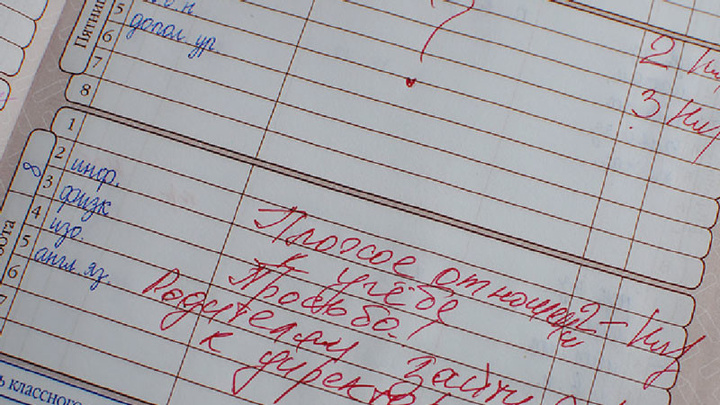 Пятниц
5
6 допол ур
7
8
?
2
3
1
2 инф.
3 физк
4 изо
5 англ яз
6
7
8
ота
Плохое отношен
к учёбе 2-
Просьба!
Родителям зайти
к директо
ь классного